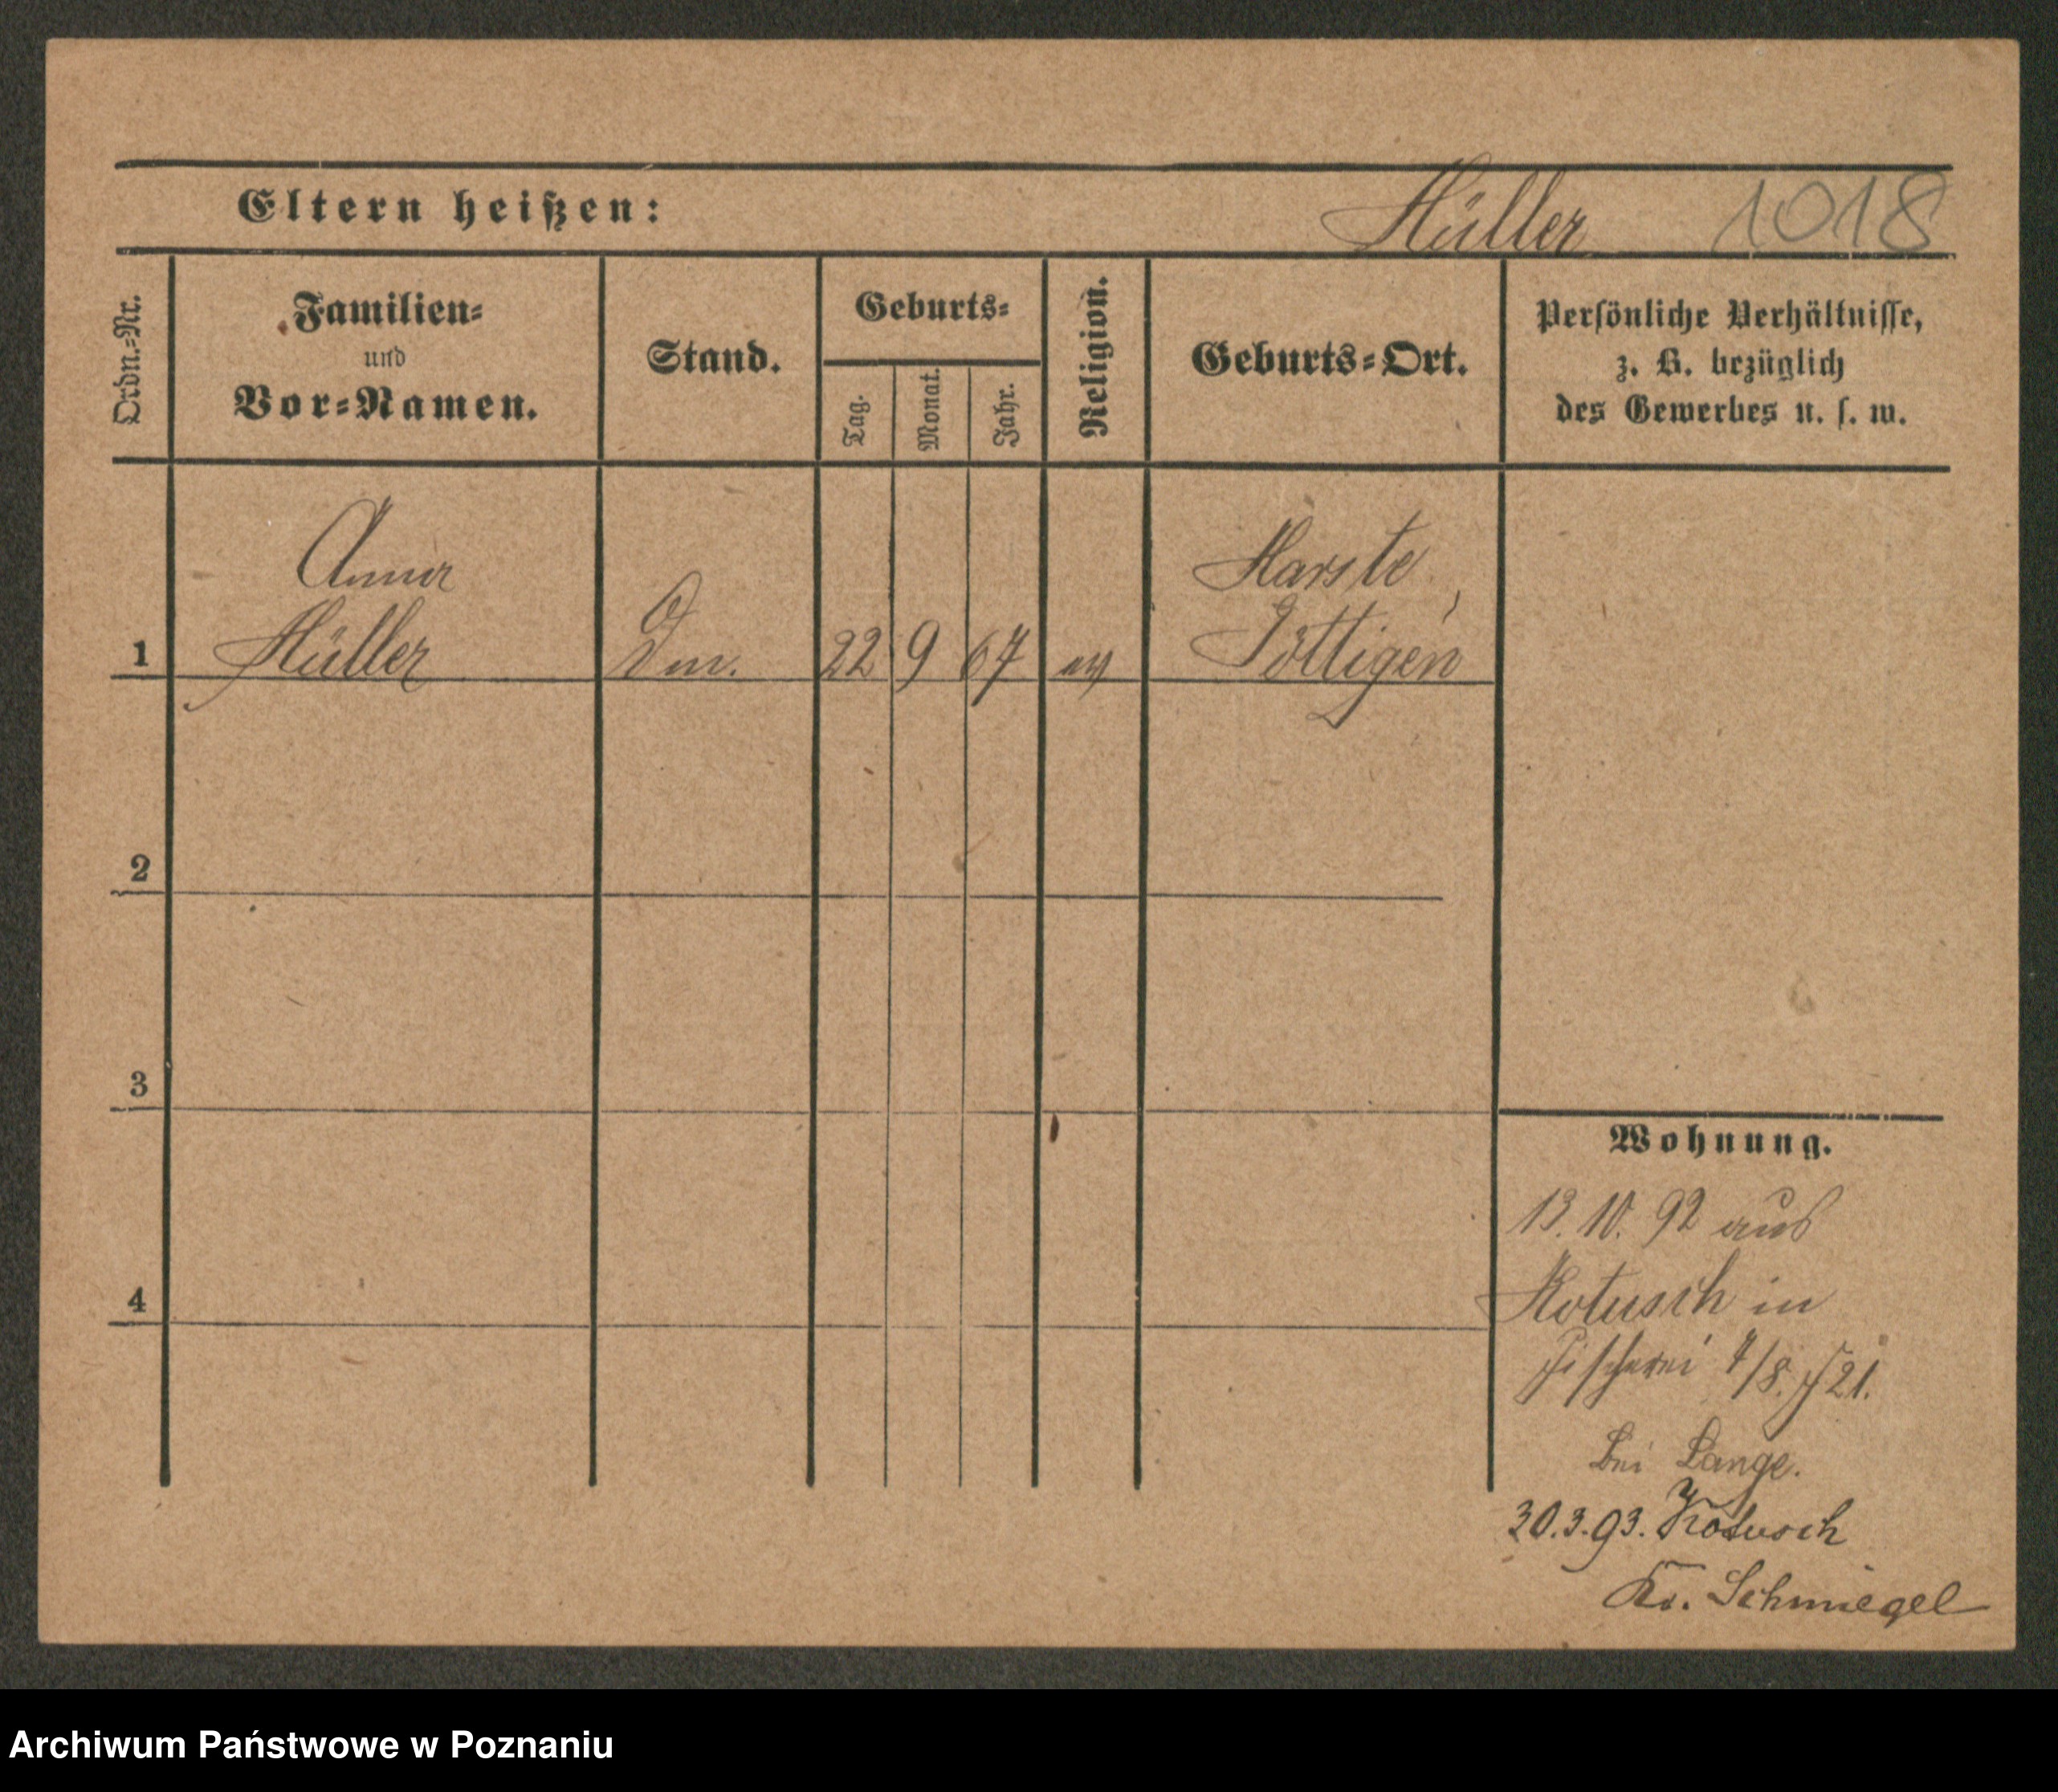 Eltern heißen: Hüller 1018
Ordn.=Nr.
Familien=
und
Vor=Namen.
Stand.
Geburts=
Tag.
Monat.
Jahr.
Religion.
Geburts=Ort.
Persönliche Verhältnisse,
z. B. bezüglich
des Gewerbes u. s. w.
Anna Harste,
1 Hüller 22 9 67 ev Göttigen
2
3
4
Wohnung.
13.10.92 aus
Kotusch in
Fischerei 7/8. 21.
bei Lange.
30.3.93. Kotusch
Kr. Schmiegel
Archiwum Państwowe w Poznaniu